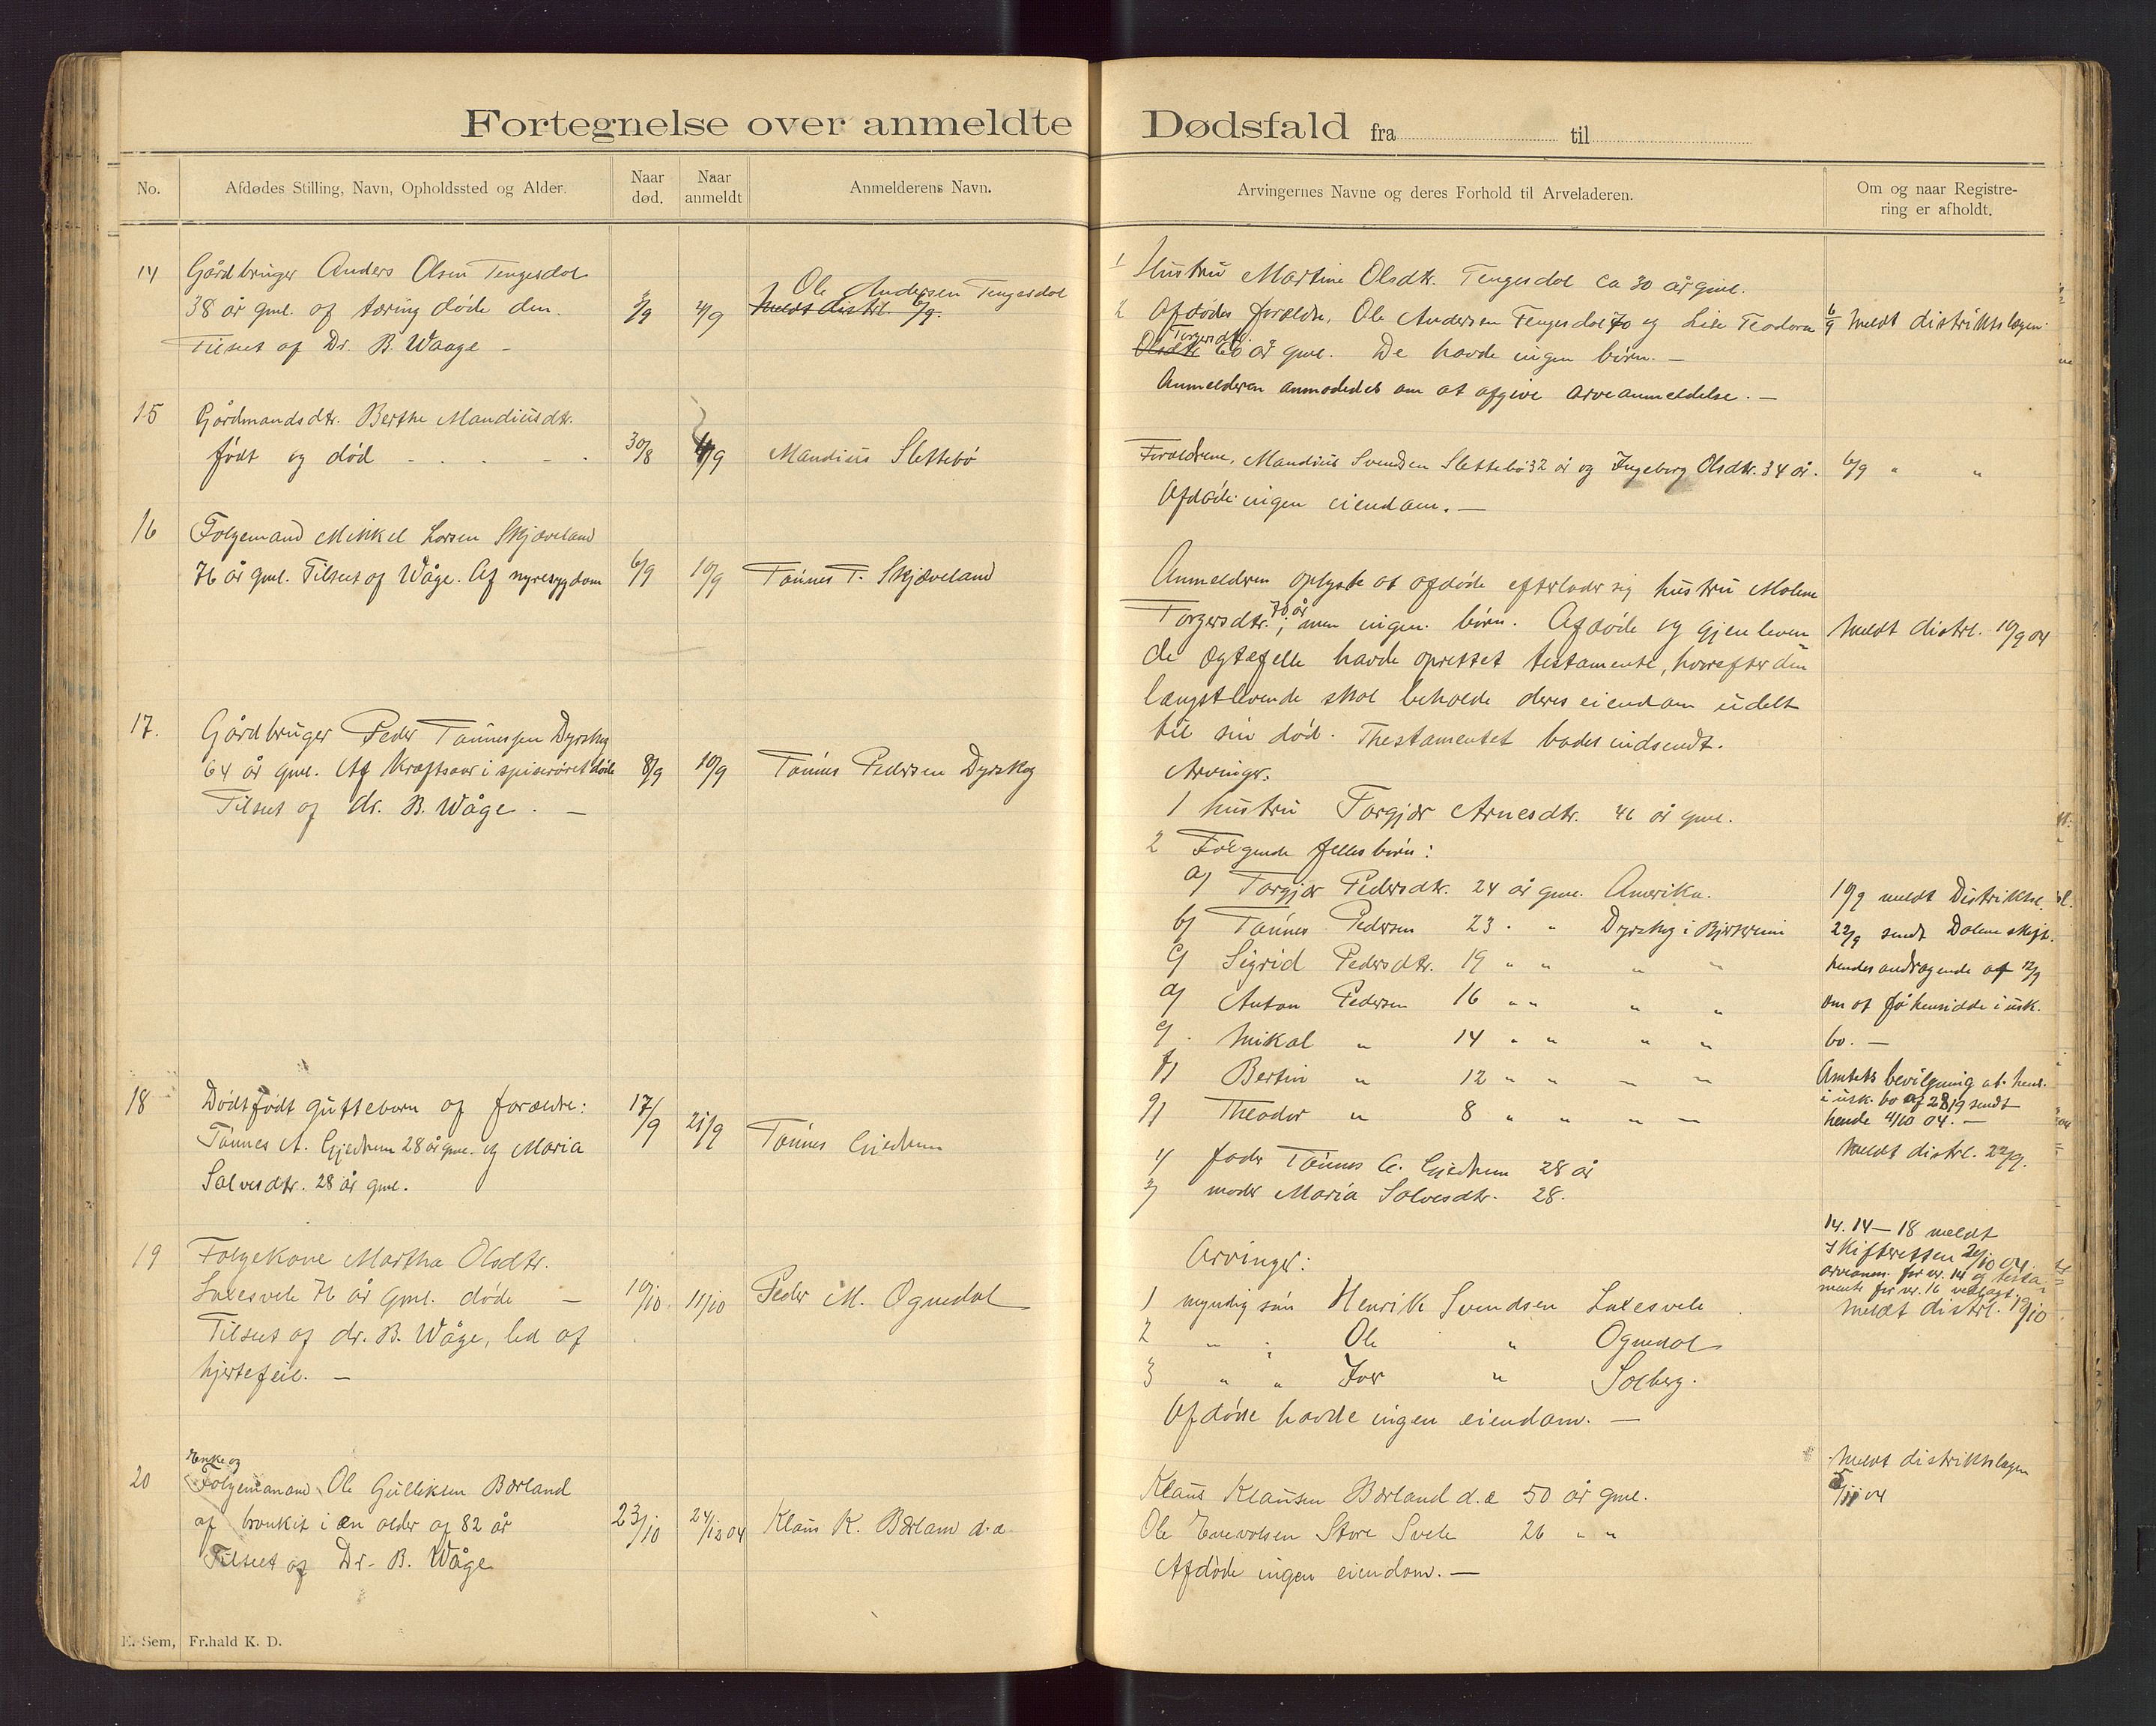 Fortegnelse over anmeldte Dødsfald fra til
No.
Afdødes Stilling, Navn, Opholdssted og Alder.
Naar død.
Naar anmeldt
Anmelderens Navn.
Arvingernes Navne og deres Forhold til Arveladeren.
Om og naar Registre-
ring er afholdt.
14 Gårdbruger Anders Olsen Tengesdal
38 år gml. af tæring døde den
Tilseet af Dr. B. Waage -
4/9
Ole Andersen Tengesdal
Meldt distrl. 6/9.
1 Hustru Martine Olsdtr. Tengesdal ca 30 år gml.
2 Afdødes forældre, Ole Andersen Tengesdal 70 og Lise Teodora
Torgersdtr.
Olsdtr 60 år gml. De havde ingen børn. -
Anmelderen anmodedes om at afgive arveanmeldelse. -
6/9 Meldt distriktslægen.
15 Gårdmandsdtr. Berthe Mandiusdtr.
født og død - . . - .
30/8
4/9
Mandius Slettebø
Forældrene, Mandius Svendsen Slettebø 32 år og Ingeborg Olsdtr. 34 år.
Afdøde ingen eiendom. -
6/9 " "
16 Folgemand Mikkel Larsen Skjæveland
76 år gml. Tilseet af Wåge. Af nyresygdom
6/9
10/9
Tønnes T. Skjæveland
Anmelderen oplyste at afdøde efterlader sig hustru Malene
Torgersdtr. 70 år, men ingen børn. Afdøde og gjenleven
de ægtefelle havde oprettet testamente, hvorefter den
længstlevende skal beholde deres eiendom udelt
til sin død. Thestamentet bades indsendt.
Meldt distrl. 10/9 04
17. Gårdbruger Peder Tønnessen Dyrskog
64 år gml. Af Kræftsaar i spiserøret døde
Tilseet af dr. B. Wåge. -
8/9
10/9
Tønnes Pedersen Dyrskog
Arvinger.
1 hustru Torgjær Arnesdtr. 46 år gml.
2 Følgende fellesbørn:
a) Torgjær Pedersdtr. 24 år gml. Amerika.
b) Tønnes Pedersen 23 . " Dyrskog i Bjerkreim
c) Sigrid Pedersdtr. 19 " " " "
d) Anton Pedersen 16 " " " "
e) Mikal " 14 " " " "
f) Bertin " 12 " " " "
g) Theodor " 8 " " " "
10/9 meldt Distriktsl.
22/9 sendt Dalene skift.
hendes andragende af 12/9
om at få hensidde i usk.
bo. -
Amtets bevilgning at hens.
i usk. bo af 28/9 sendt
hende 4/10 04. -
18 Dødtfødt gutteborn af forældre:
Tønnes A. Gjedrem 28 år gml. og Maria
Salvesdtr. 28 år gml.
17/9
21/9
Tønnes Gjedrem
1) fader Tønnes A. Gjedrem 28 år
2) moder Maria Salvesdtr. 28.
Meldt distrl. 22/9.
14-18 meldt
skifteretten
arveanm. for nr. 14 og testa-
mente for nr. 16 vedlagt.
19 Folgekone Martha Olsdtr.
Laxesvele 76 år gml. døde -
Tilseet af dr. B. Wåge, led af
hjertefeil. -
10/10
11/10
Peder M. Ognedal
Arvinger:
1 myndig søn Henrik Svendsen Laxesvele
2 " " Ole " Ognedal
3 " " Iver " Solberg.
Afdøde havde ingen eiendom. -
Meldt distrl. 19/10
20 Enke og
Folgemand Ole Gulliksen Bærland
af bronkit i en alder af 82 år
Tilseet af Dr. B. Wåge
23/10
24/12 04
Klaus K. Bærland d.æ
Klaus Klausen Bærland d.æ 50 år gml.
Ole Enevoldsen Store Svele 26 " "
Afdøde ingen eiendom. -
Meldt distriktslægen
5/11 04
E. Sem, Fr.hald K. D.